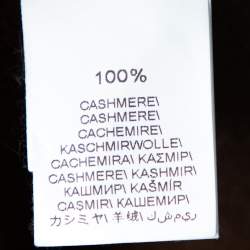 100%
CASHMERE\
CASHMERE\
CACHEMIRE\
KASCHMIRWOLLE\
CACHEMIRA\ ΚΑΣΜΙΡ\
CASHMERE\ KASHMIR\
КАШМИР\ KAŠMÍR
CAŞMIR\ КАШЕМИР\
カシミヤ\ 羊绒\ ريمشك